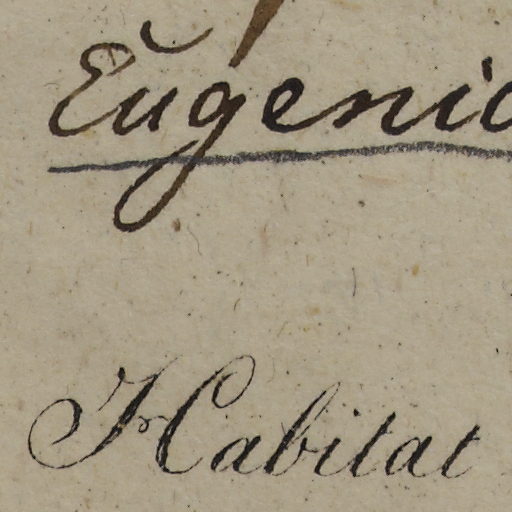 Eugenia
Habitat